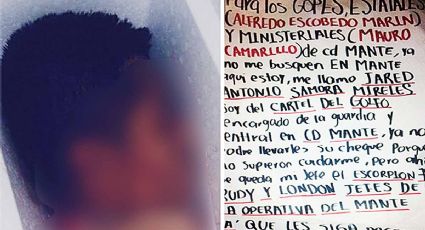 Para los GOPES, ESTATALES
(ALFREDO ESCOBEDO MARIN)
Y MINISTERIALES (MAURO
CAMARILLO) de cd MANTE, ya
no me busquen EN MANTE
aqui estoy, me llamo JARED
ANTONIO SAMORA MIRELES
soy del CARTEL DEL GOLFO
encargado de la guardia y
central en CD MANTE, ya no
podre llevarles su cheque Porque
no supieron cuidarme, Pero ahi
se queda mi Jefe el ESCORPION
RUDY Y LONDON JEFES DE
LA OPERATIVA DEL MANTE
QUE LES